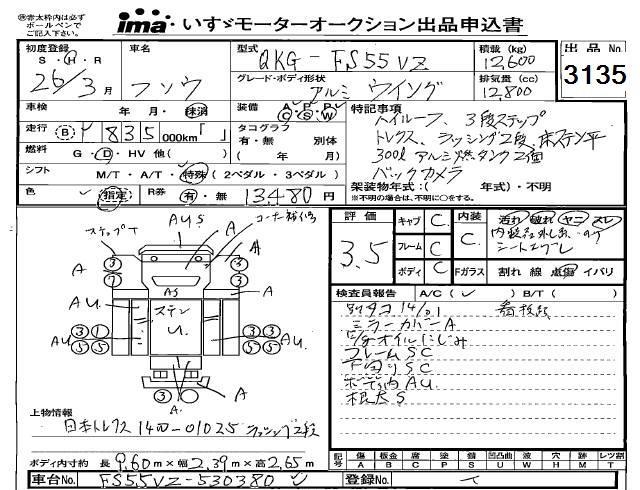 ※赤太枠内は必ず
ボールペンで
ご記入下さい。
ima いすゞモーターオークション出品申込書
初度登録 S・H・R 26/3月
車名 フソウ
型式 QKG-FS55VZ
グレード・ボディ形状 アルミ ウイング
積載(kg) 12,600
排気量(cc) 12,800
出品No.
3135
車検 年・月・抹消
装備 A P P C S W
走行 B 835 000km「 」
タコグラフ
有・無 別体
( 年 月)
燃料 G・D・HV 他( )
シフト M/T・A/T・特殊(2ペダル・3ペダル)
色 指定
R券 有・無 13480円
特記事項
ハイルーフ、3段ステップ
トレクス、ラッシング2段、床ステン平
300lアルミ燃タンク2個
バックカメラ
架装物年式:( 年式)・不明
※不明の場合は、不明に○をする。
評価 3.5
キャブ C
フレーム C
ボディ C
内装 C
Fガラス
汚れ 破れ ヤニ スレ
シート
割れ 線 点傷 イバリ
検査員報告 A/C( ) B/T( )
ミラーカバーA
オイルにじみ
フレームSC
下回りSC
ボディ内AU
AUS
コーナー
ステップ
A
A
A
A
AS
ステン
U
AU
AU
3
7
3
7
3 1
5 5
3 3
5 5
3
A
上物情報
日本トレクス 1400-01025 ラッシング2段
ボディ内寸約 長9.60m×幅2.39m×高2.65m
車台No. FS55VZ-530380
記号 傷A 板金B 腐C 塗装P サビS 凹凸曲U 波W 穴H 跡M レツ割T
登録No.